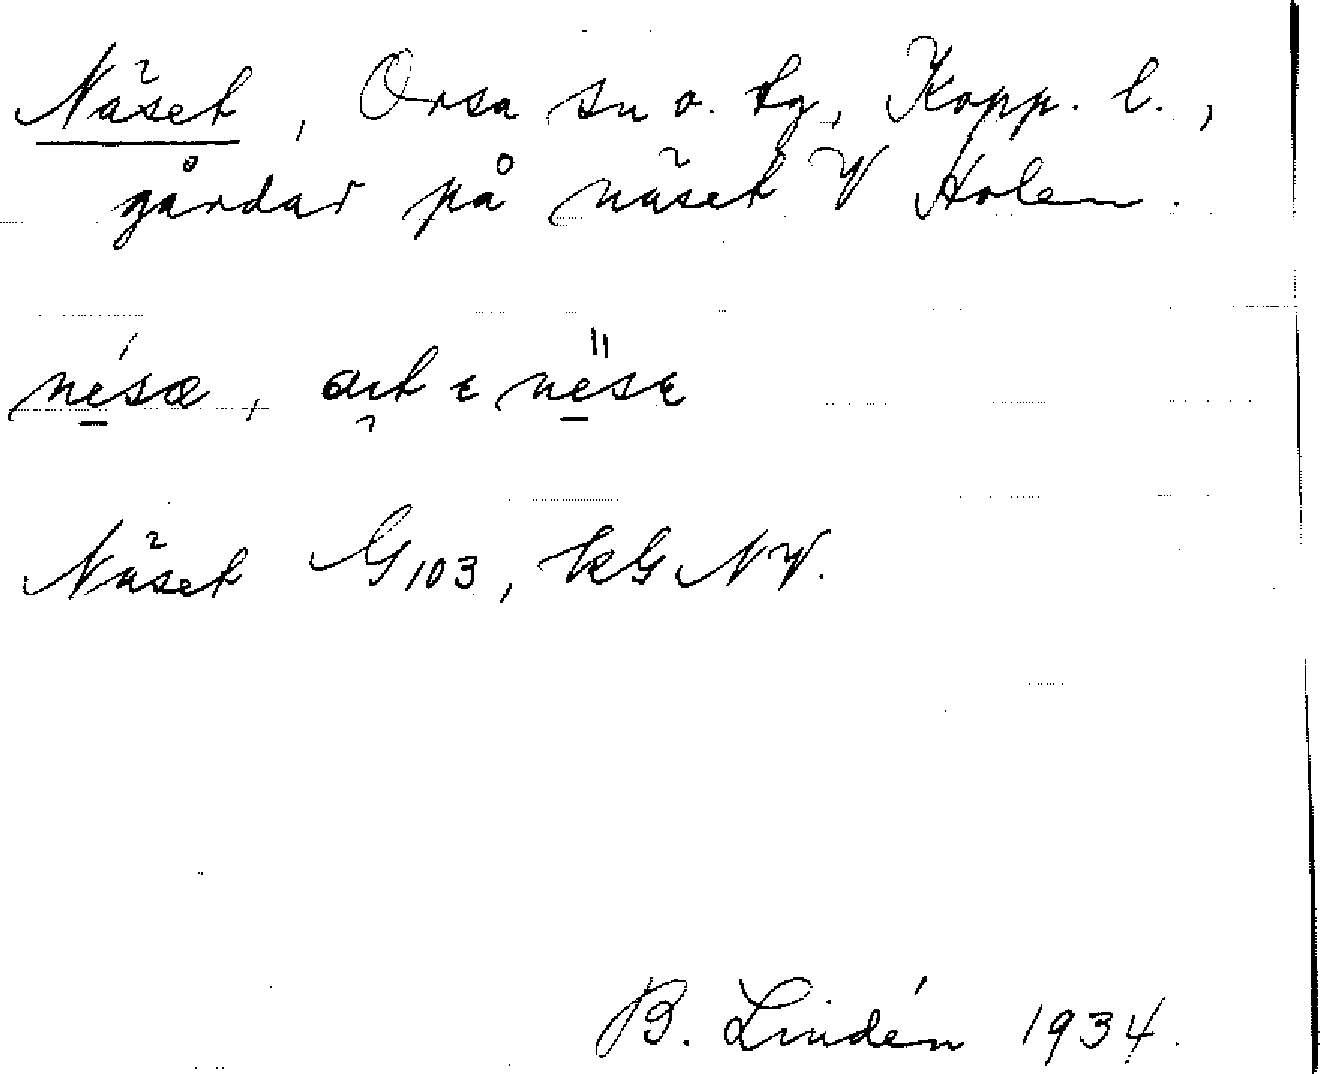 Näset, Orsa sn o. tg, Kopp. l.,
gårdar på näset V Holen.
Näset G103, kG NV.
B. Lindén 1934.